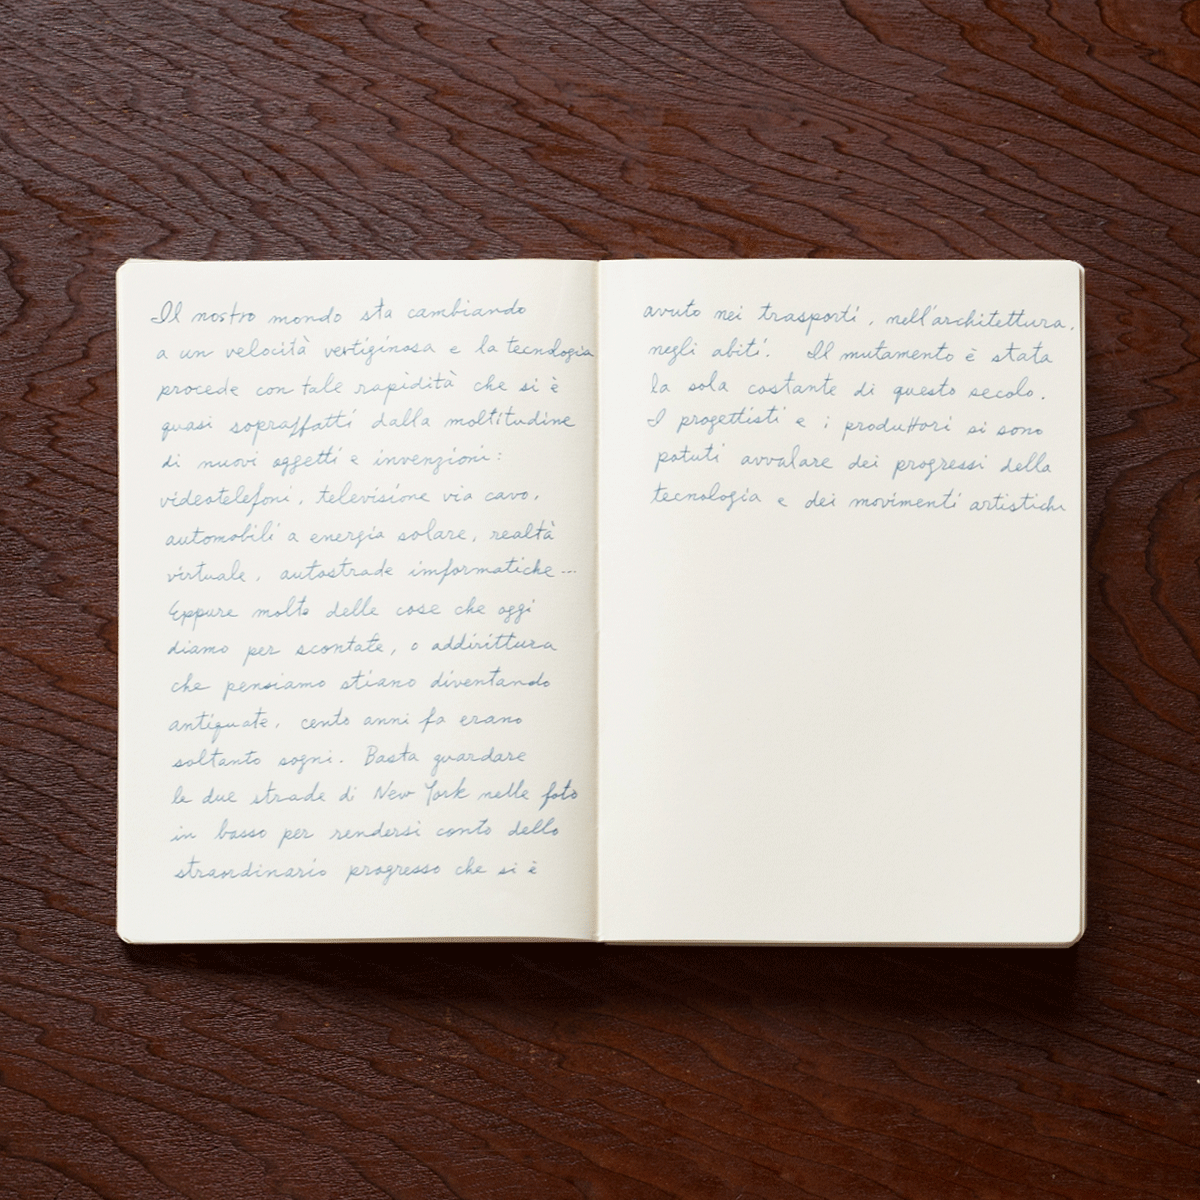 Il nostro mondo sta cambiando
a un velocità vertiginosa e la tecnologia
procede con tale rapidità che si è
quasi sopraffatti dalla moltitudine
di nuovi oggetti e invenzioni:
videotelefoni, televisione via cavo,
automobili a energia solare, realtà
virtuale, autostrade imformatiche...
Eppure molte delle cose che oggi
diamo per scontate, o addirittura
che pensiamo stiano diventando
antiquate, cento anni fa erano
soltanto sogni. Basta guardare
le due strade di New York nelle foto
in basso per rendersi conto dello
straordinario progresso che si è
avuto nei trasporti, nell'architettura,
negli abiti. Il mutamento è stata
la sola costante di questo secolo.
I progettisti e i produttori si sono
potuti avvalare dei progressi della
tecnologia e dei movimenti artistichi